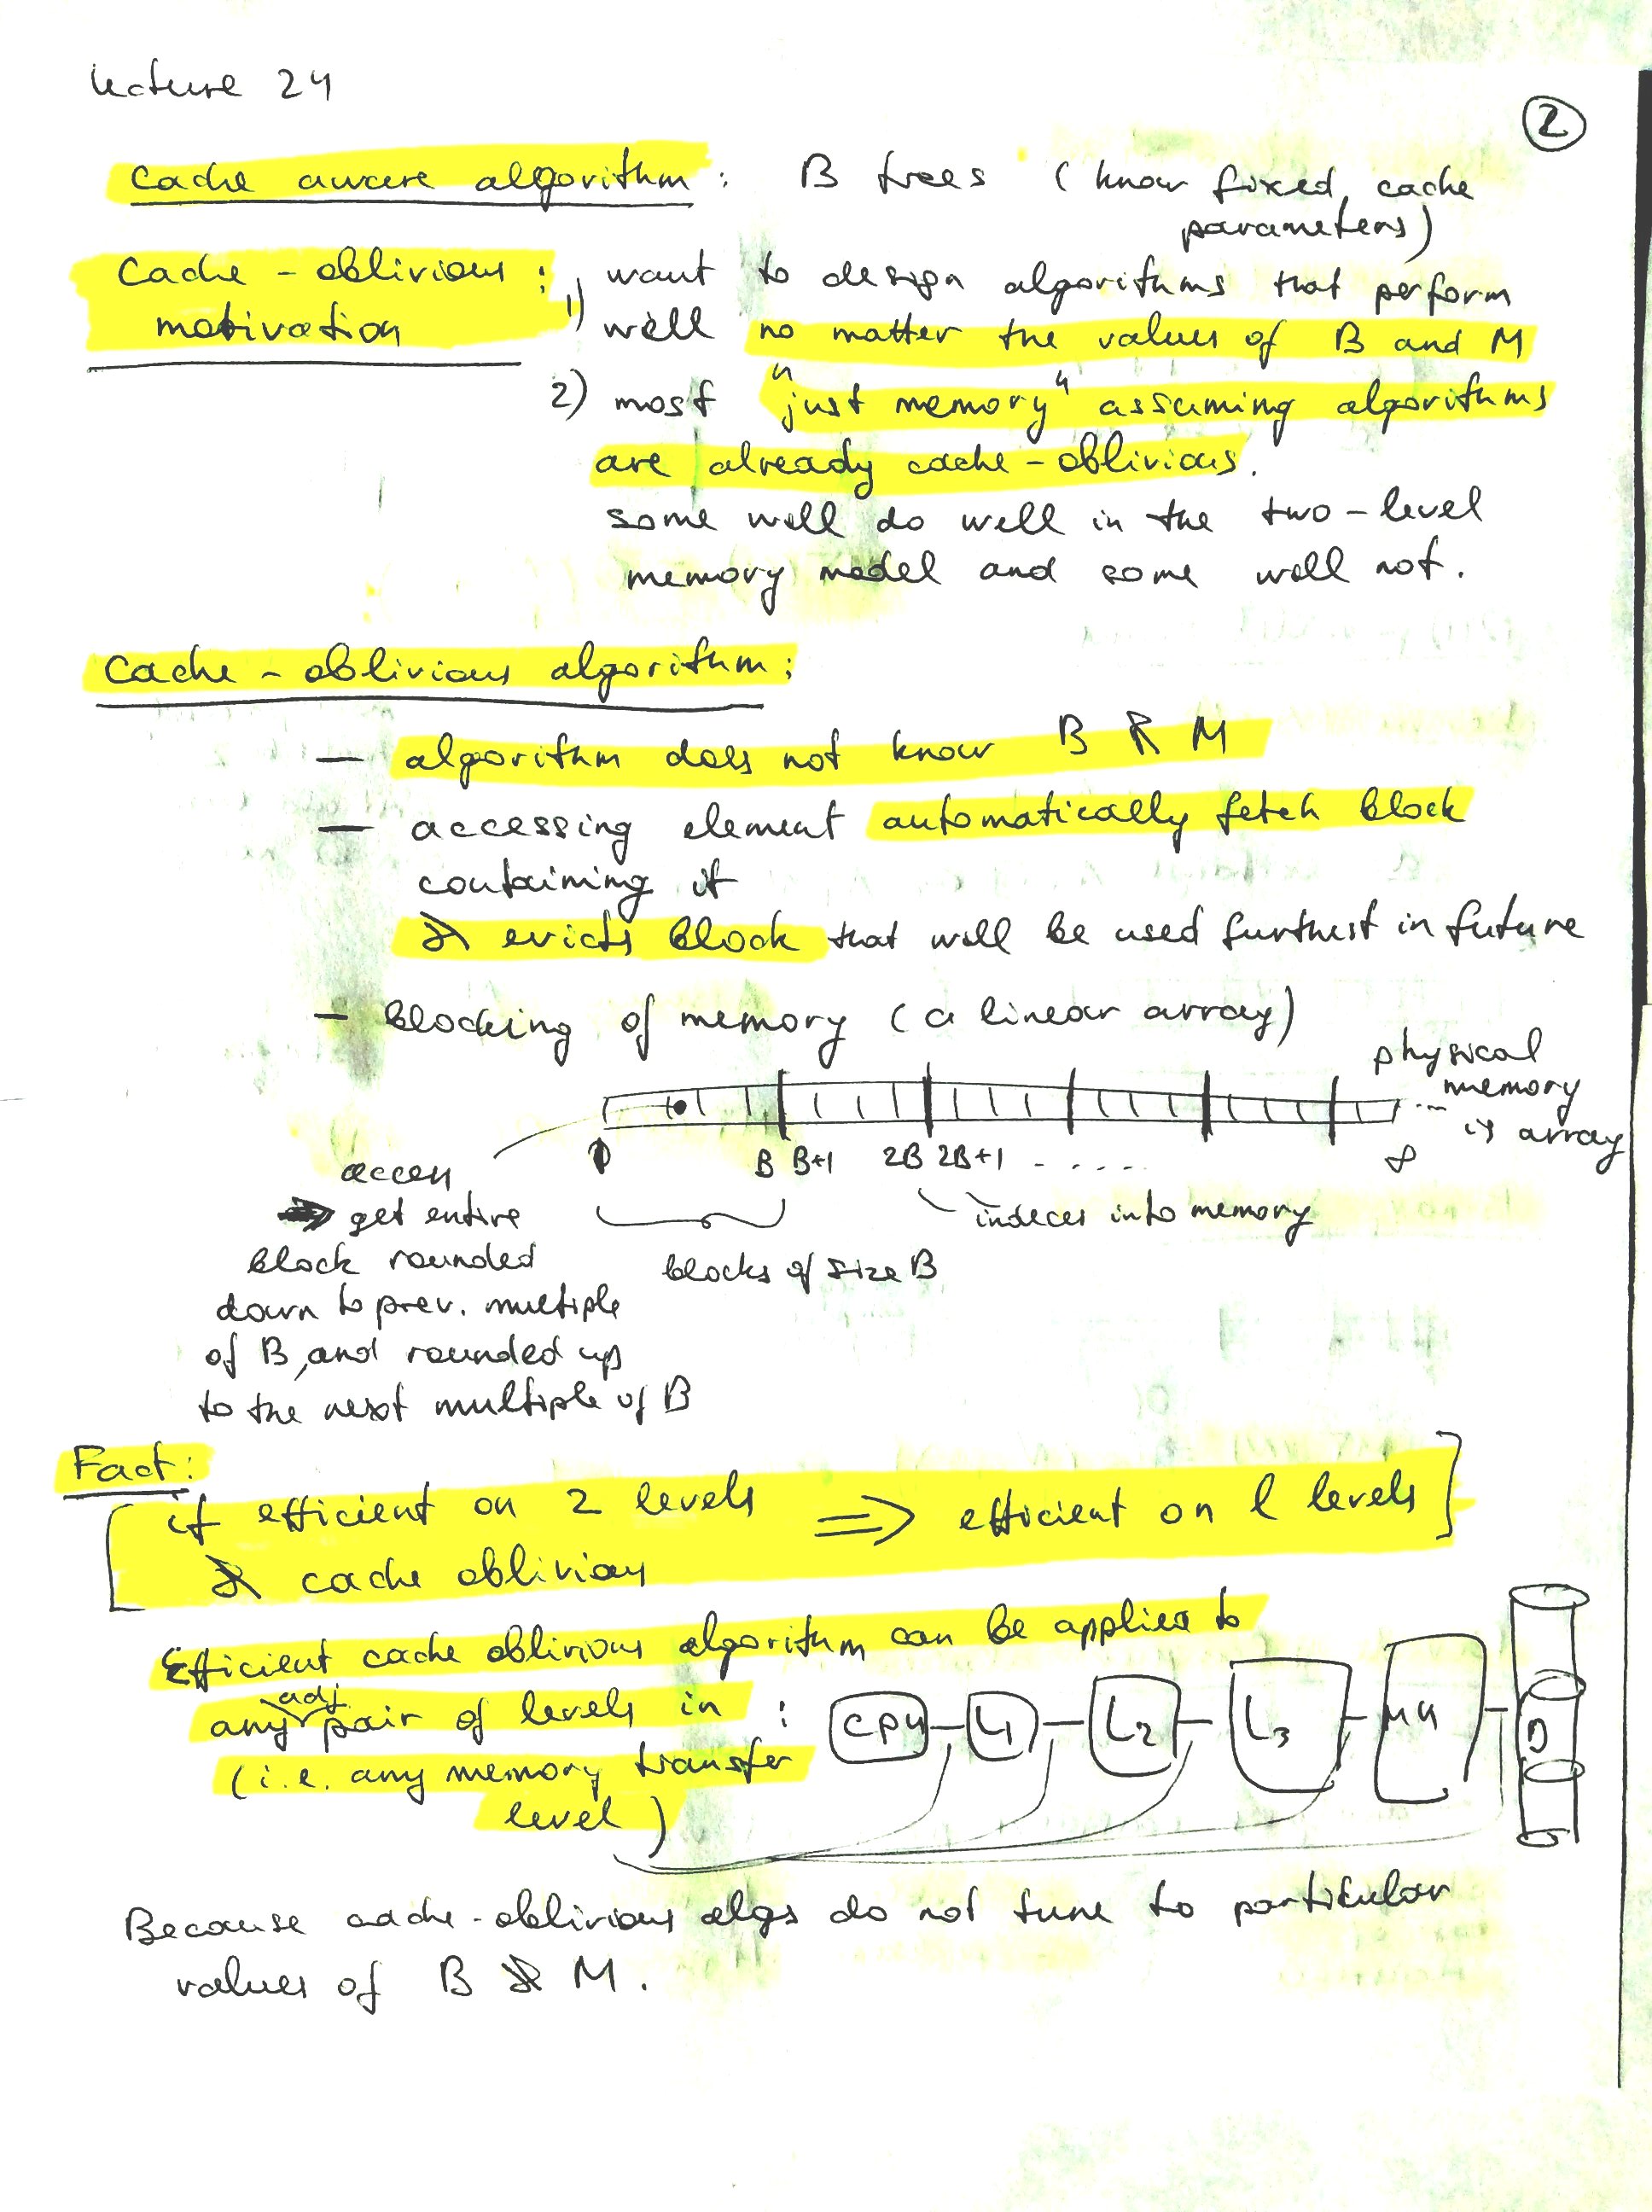 Lecture 24
2
Cache aware algorithm: B trees (know fixed cache
parameters)
Cache-oblivious: 1) want to design algorithms that perform
motivation well no matter the values of B and M
2) most "just memory" assuming algorithms
are already cache-oblivious.
some will do well in the two-level
memory model and some will not.
Cache-oblivious algorithm:
— algorithm does not know B & M
— accessing element automatically fetch block
containing it
& evicts block that will be used furthest in future
- blocking of memory (a linear array)
physical
memory
is array
B B+1 2B 2B+1 - .....
∞
access
⇒ get entire
block rounded
down to prev. multiple
of B, and rounded up
to the next multiple of B
indeces into memory
blocks of size B
Fact:
[if efficient on 2 levels ⇒ efficient on l levels]
& cache oblivious
Efficient cache oblivious algorithm can be applied to
any adj pair of levels in :
(i.e. any memory transfer
level)
CPU L1 L2 L3 MM D
Because cache-oblivious algs do not tune to particular
values of B & M.